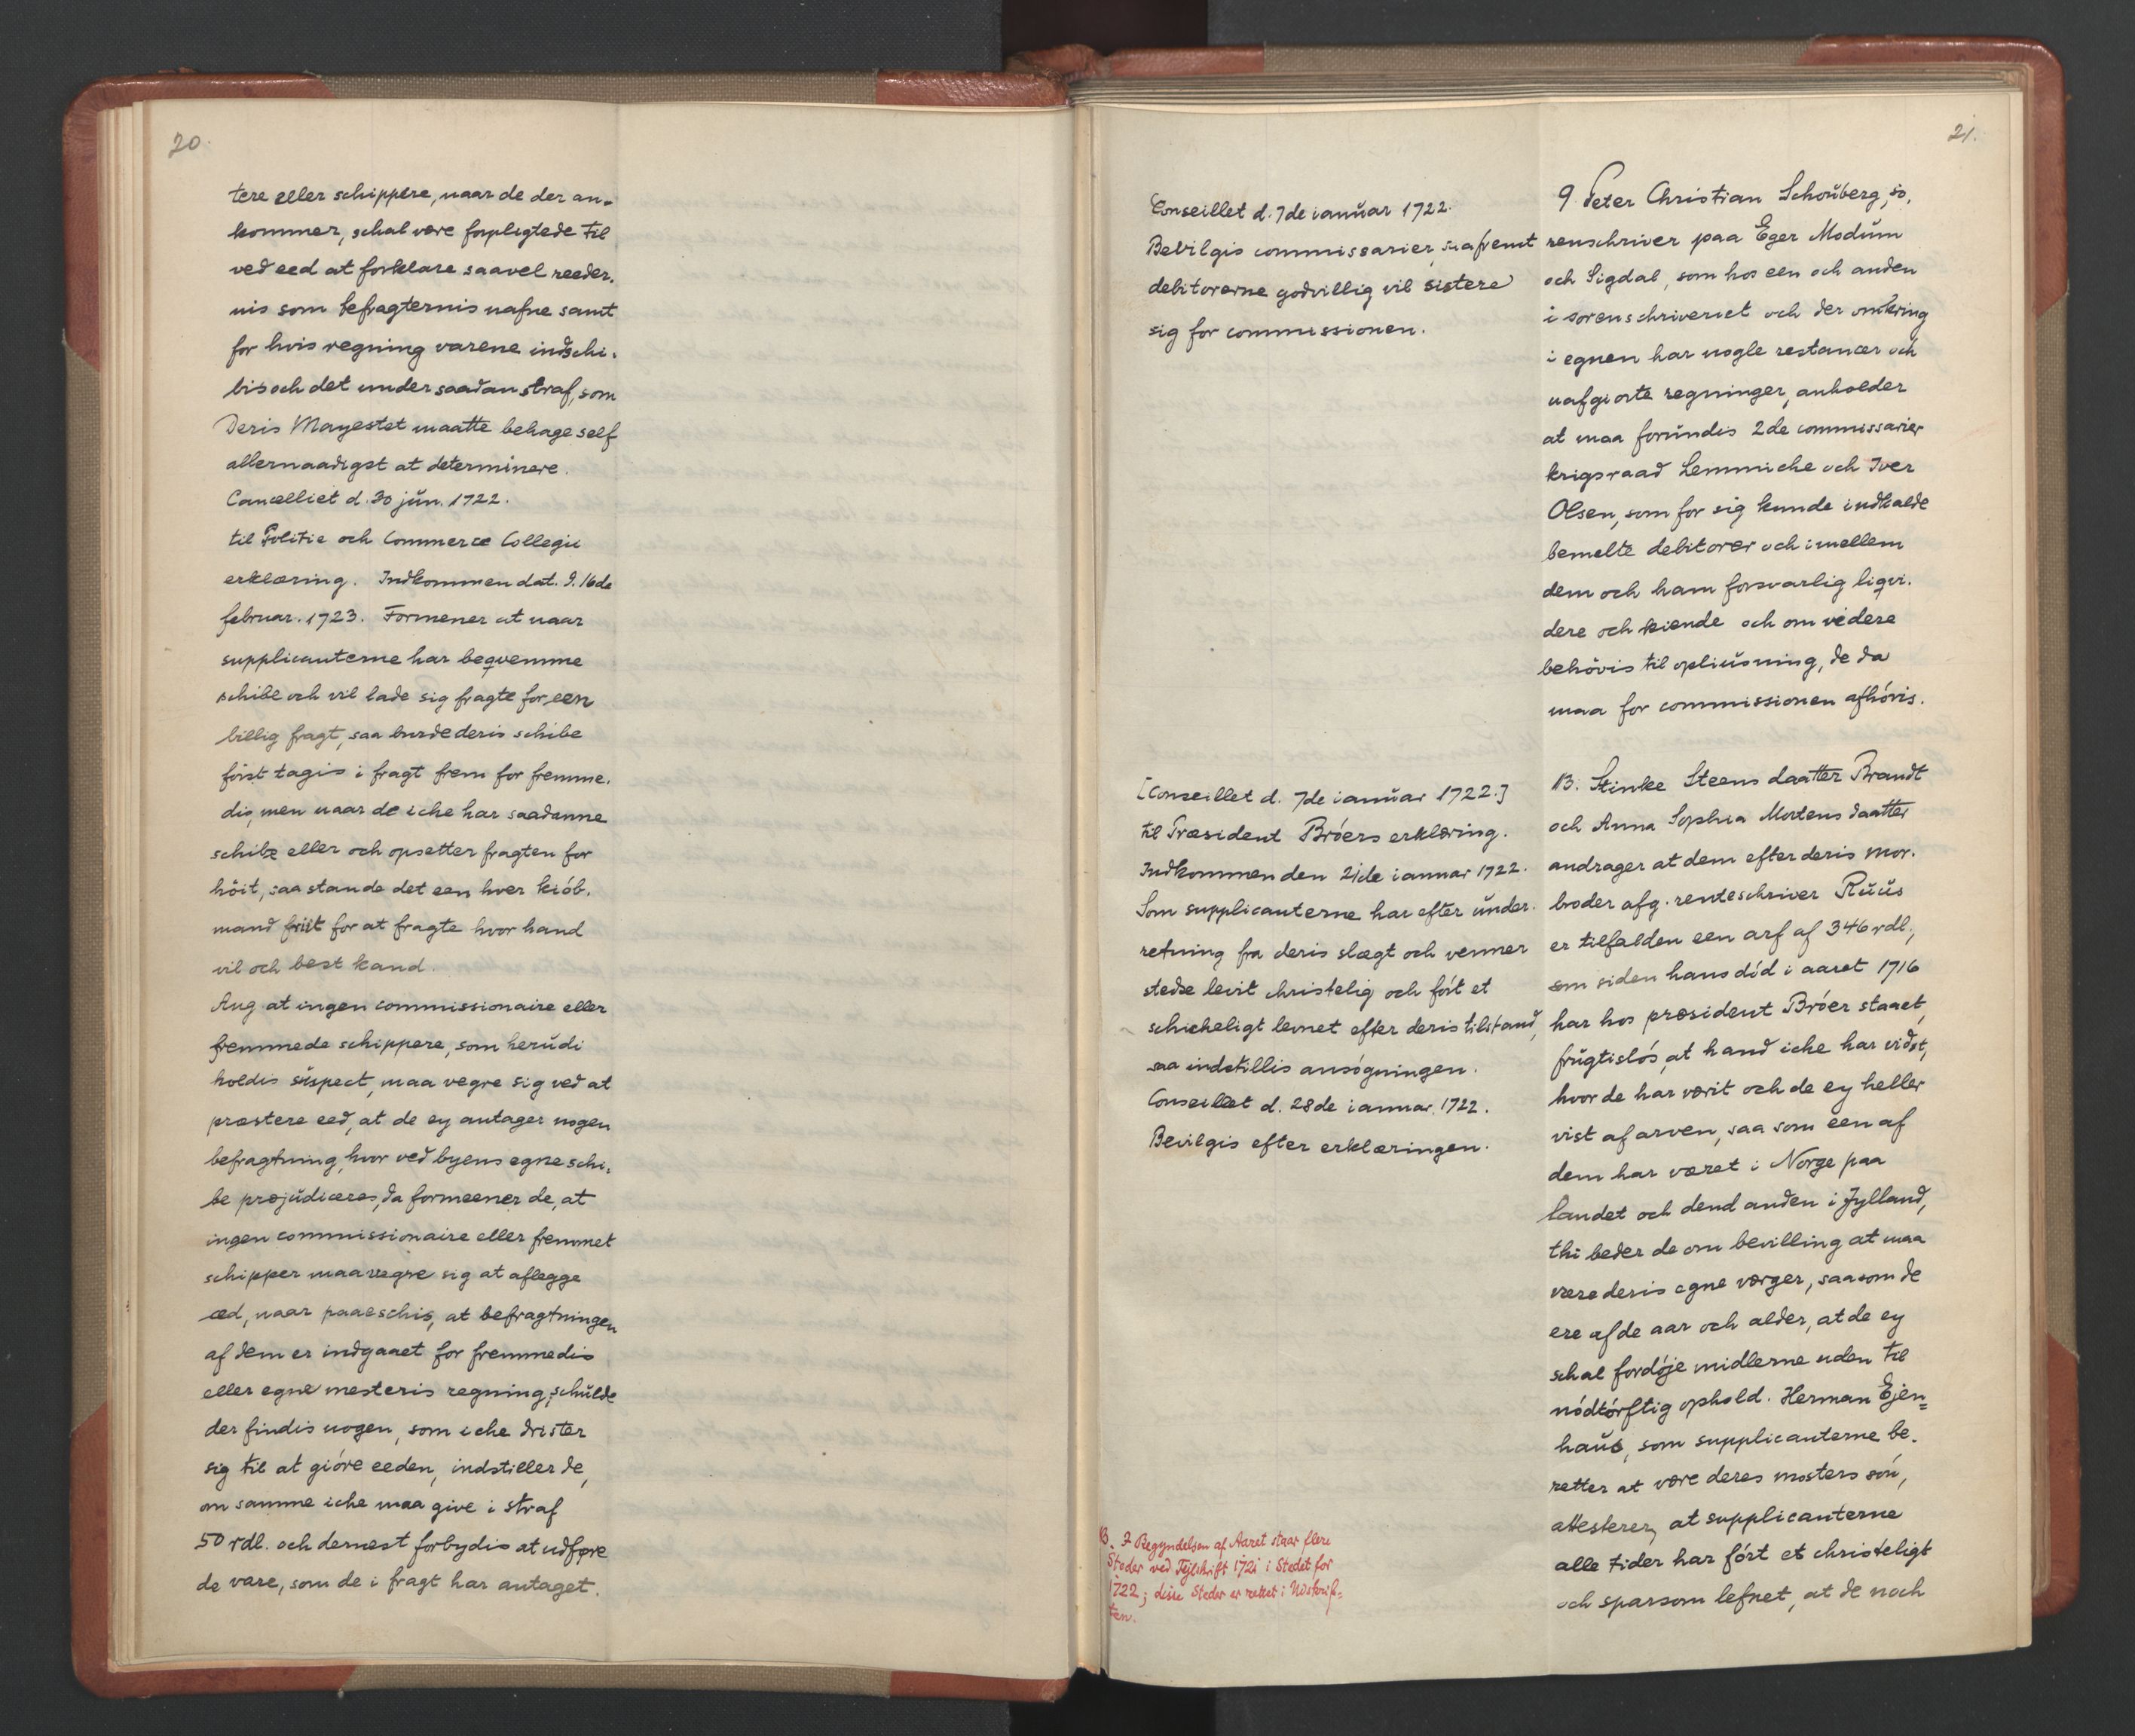 20.
tere eller schippere, naar de der an-
kommer, schal være forpligtede til
ved eed at forklare saavel reeder-
nis som befragternis nafne samt
for hvis regning varene indschi-
bis och det under saadan straf, som
Deris Mayestet maatte behage self
allernaadigst at determinere.
Cancelliet d. 30 jŭn. 1722.
til Politie och Commerce Collegii
erklæring. Indkommen dat. d. 16de
februar. 1723. Formener at naar
supplicanterne har beqvemme
schibe och vil lade sig fragte for een
billig fragt, saa burde deris schibe
först tagis i fragt frem for fremme-
dis, men naar de iche har saadanne
schibe eller och opsetter fragten for
höit, saa stande det een hver kiób-
mand friit for at fragte hvor hand
vil och best kand.
Ang. at ingen commissionaire eller
fremmede schippere, som herŭdi
holdis sŭspect, maa vegre sig ved at
præstere eed, at de ey antager nogen
befragtning, hvor ved byens egne schi-
be præjŭdiceres, da formeener de, at
ingen commissionaire eller fremmet
schipper maa vegre sig at aflegge
eed, naar paaeschis, at befragtningen
af dem er indgaaet for fremmedis
eller egne mesteris regning; schŭlde
der findis nogen, som iche drister
sig til at gióre eeden, indstiller de,
om samme iche maa give i straf
50 rdl. och dernest forbydis at udføre
de vare, som de i fragt har antaget.
21.
Conseillet d. 7de ianŭar 1722.
Bevilgis commissarier, saafremt
debitorerne godvillig vil sistere
sig for commissionen.
[Conseillet d. 7de ianŭar 1722.]
til Præsident Bróers erklæring.
Indkommen den 21de ianuar 1722.
Som supplicanterne har efter ŭnder-
retning fra deris slægt och venner
stedse levit christelig och fórt et
schicheligt levnet efter deris tilstand,
saa indstillis ansógningen.
Conseillet d. 28de ianuar. 1722.
Bevilgis efter erklæringen.
B. I Begyndelsen af Aaret staar flere
Steder ved Fejlskrift 1721 i Stedet for
1722; disse Steder er rettet i Udskrif-
ten.
9. Peter Christian Schoŭberg, so-
renschriver paa Eger Modŭm
och Sigdal, som hos een och anden
i sorenschriveriet och der omkring
i egnen har nogle restancer och
uafgiorte regninger, anholder
at maa forŭndis 2de commissarier
krigsraad Lemmiche och Iver
Olsen, som for sig kunde indkalde
bemelte debitorer och imellem
dem och ham forsvarlig liqvi-
dere och kiende och om videre
behövis til opliŭsning, de da
maa for commissionen afhóris.
13. Stinke Steens daatter Brandt
och Anna Sophia Mortens daatter
andrager at dem efter deris mor-
broder afg. renteschriver Rŭŭs
er tilfalden een arf af 346 rdl.,
som siden hans dód i aaret 1716
har hos præsident Bróer staaet
frŭgtislós, at hand iche har vidst,
hvor de har værit och de ey heller
vist af arven, saa som een af
dem har været i Norge paa
landet och dend anden i Jylland,
thi beder de om bevilling at maa
være deris egne værger, saasom de
ere af de aar och alder, at de ey
schal fordóje midlerne uden til
nódtórftig ophold. Herman Ejen=
haŭs, som supplicanterne be-
retter at være deres mosters són,
attesterer, at supplicanterne
alle tider har fórt et christeligt
och sparsom lefnet, at de noch